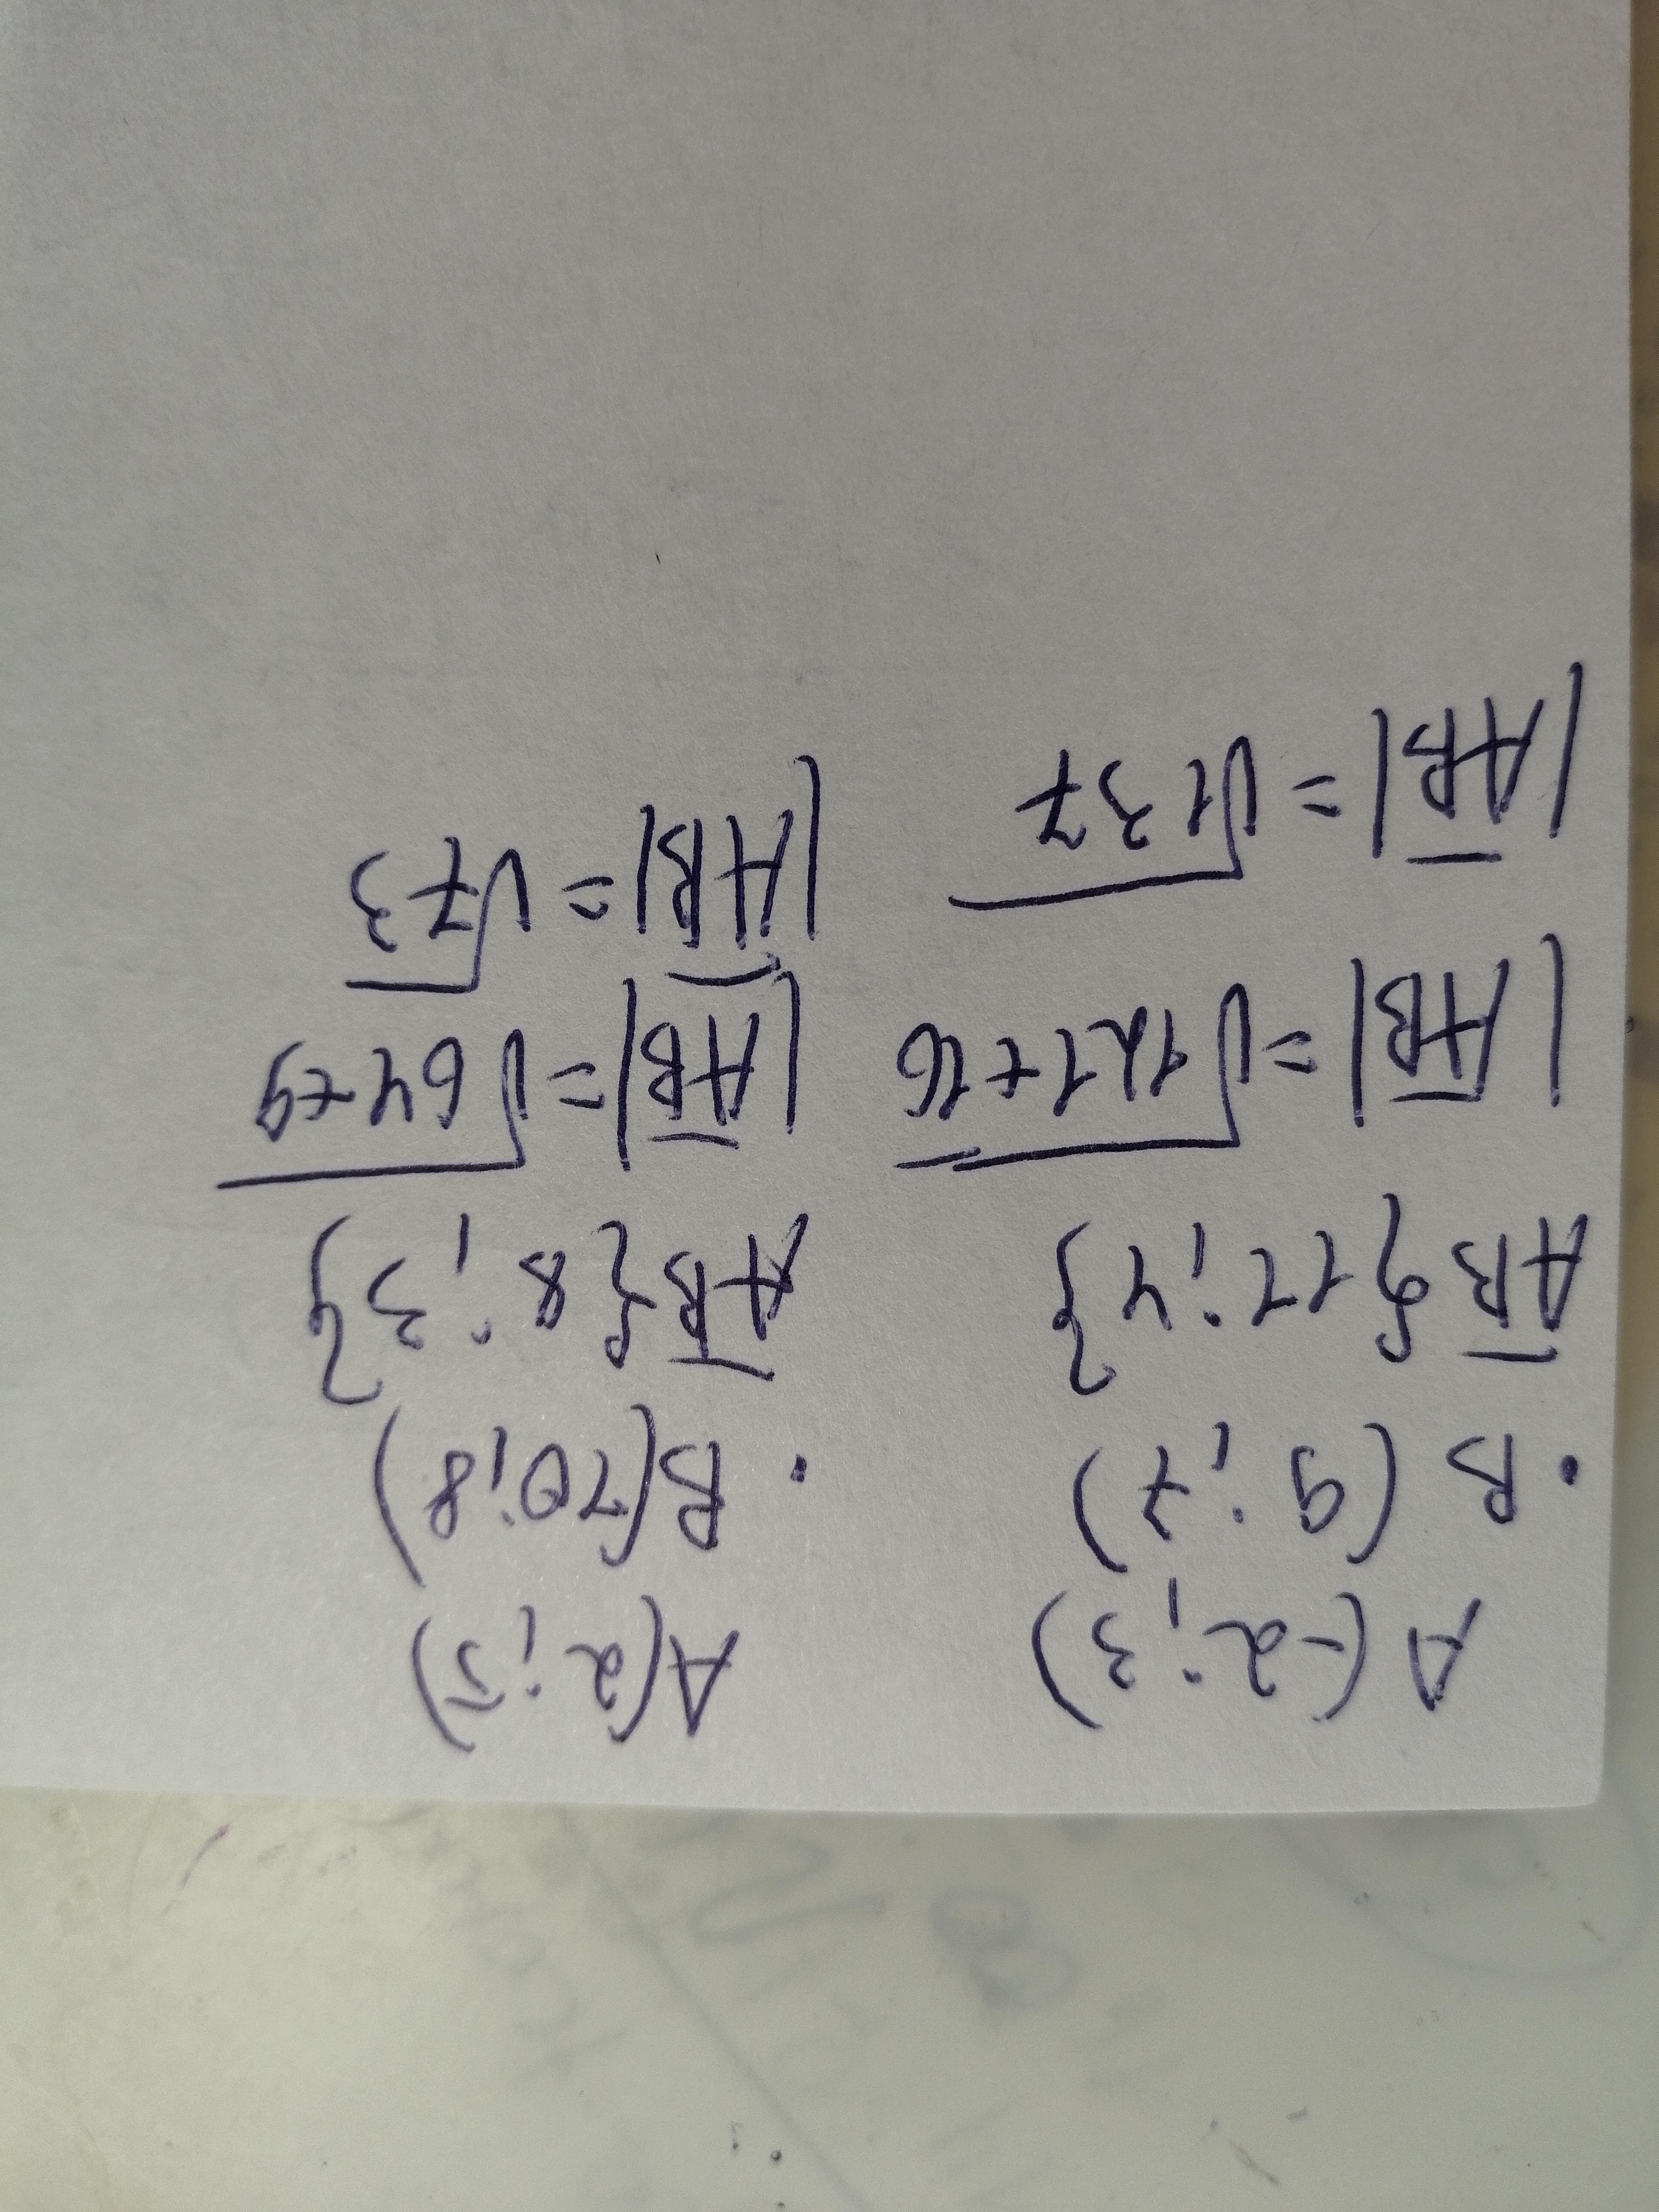 A(-2;3)
B(9;7)
AB{11;4}
|AB|=√121+16
|AB|=√137
A(2;5)
B(10;8)
AB{8;3}
|AB|=√64+9
|AB|=√73